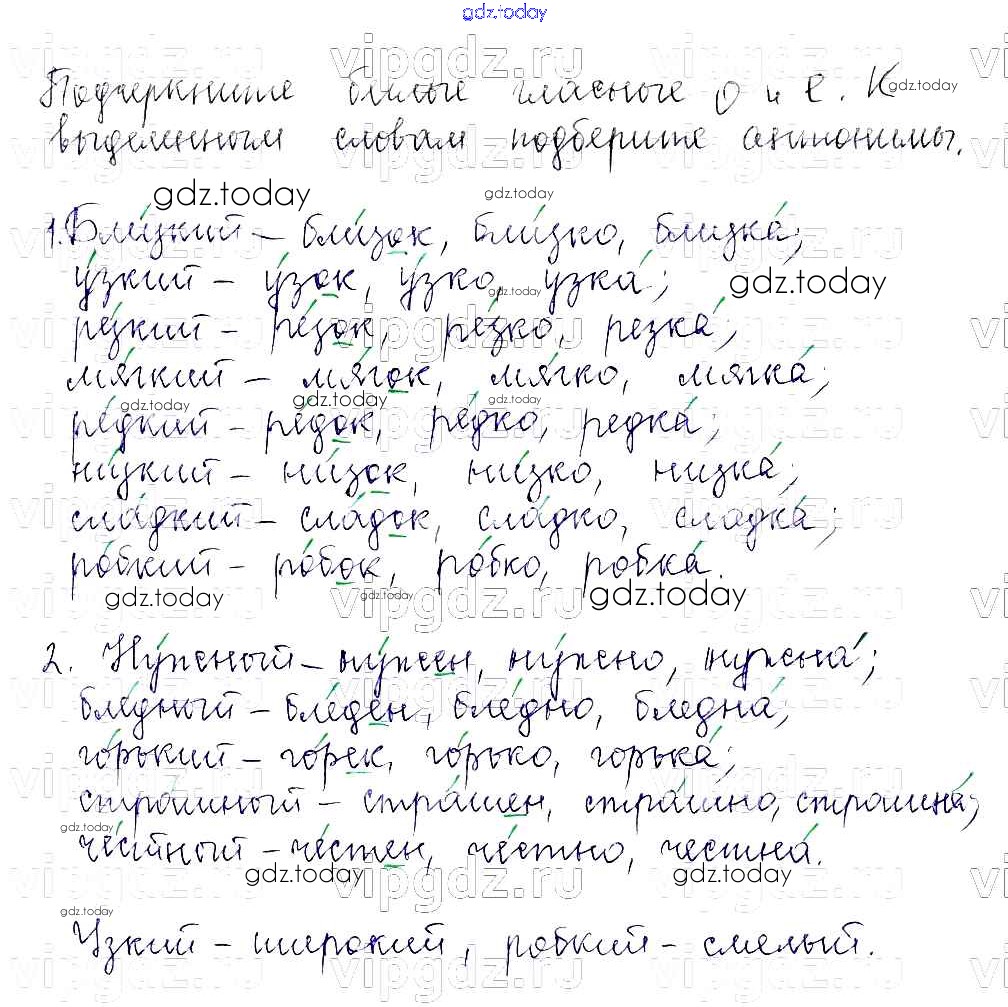 gdz.today
Подчеркните беглые гласные О и Е. К
выделенным словам подберите антонимы.
1. Бли́зкий – бли́зок, бли́зко, близка́;
у́зкий – у́зок, у́зко, узка́;
ре́зкий – ре́зок, ре́зко, резка́;
мя́гкий – мя́гок, мя́гко, мягка́;
ре́дкий – ре́док, ре́дко, редка́;
ни́зкий – ни́зок, ни́зко, низка́;
сла́дкий – сла́док, сла́дко, сладка́;
ро́бкий – ро́бок, ро́бко, робка́.
2. Ну́жный – ну́жен, ну́жно, нужна́;
бле́дный – бле́ден, бле́дно, бледна́;
го́рький – го́рек, го́рько, горька́;
стра́шный – стра́шен, стра́шно, страшна́;
че́стный – че́стен, че́стно, честна́.
Узкий – широкий, робкий – смелый.